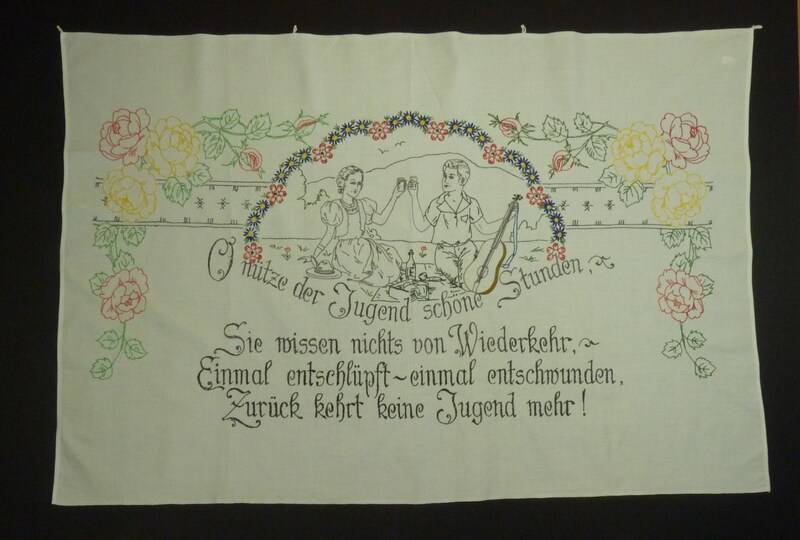 O nütze der Jugend schöne Stunden,
Sie wissen nichts von Wiederkehr,
Einmal entschlüpft ~ einmal entschwunden,
Zurück kehrt keine Jugend mehr!